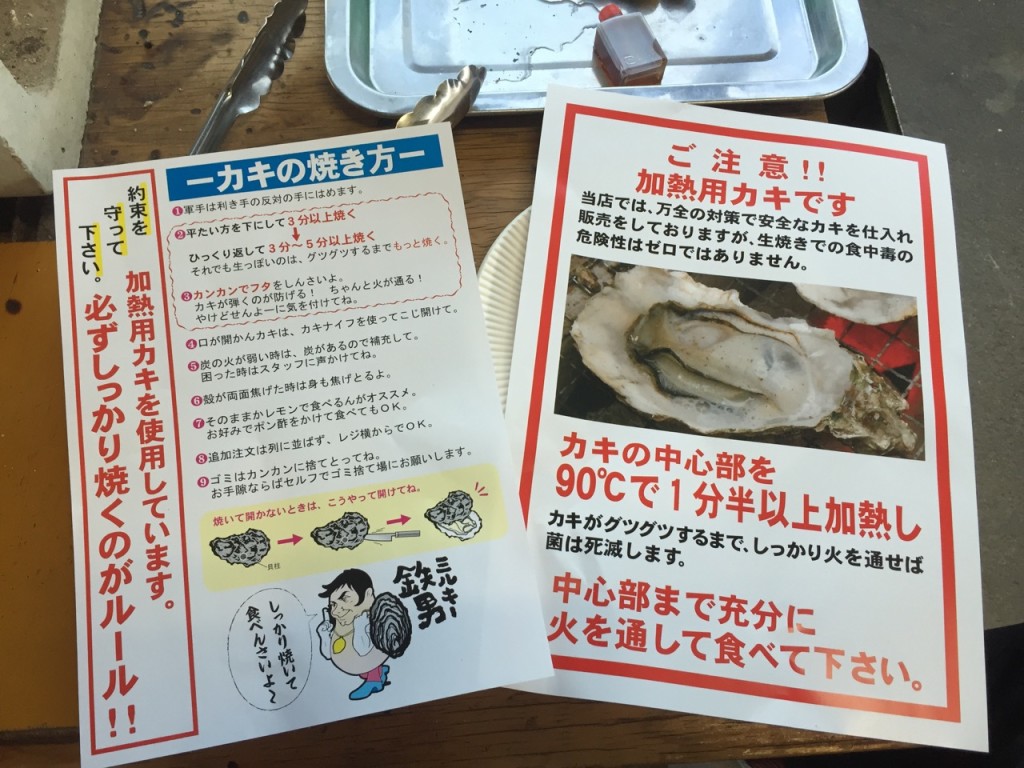 約束を
守って
下さい。
加熱用カキを使用しています。
必ずしっかり焼くのがルール!!
ーカキの焼き方ー
❶軍手は利き手の反対の手にはめます。
❷平たい方を下にして3分以上焼く
ひっくり返して3分～5分以上焼く
それでも生っぽいのは、グツグツするまでもっと焼く。
❸カンカンでフタをしんさいよ。
カキが弾くのが防げる! ちゃんと火が通る!
やけどせんよーに気を付けてね。
❹口が開かんカキは、カキナイフを使ってこじ開けて。
❺炭の火が弱い時は、炭があるので補充して。
困った時はスタッフに声かけてね。
❻殻が両面焦げた時は身も焦げとるよ。
❼そのままかレモンで食べるんがオススメ。
お好みでポン酢をかけて食べてもOK。
❽追加注文は列に並ばず、レジ横からでOK。
❾ゴミはカンカンに捨てとってね。
お手隙ならばセルフでゴミ捨て場にお願いします。
焼いて開かないときは、こうやって開けてね。
貝柱
ミルキー
鉄男
しっかり焼いて
食べんさいよ～
ご注意!!
加熱用カキです
当店では、万全の対策で安全なカキを仕入れ
販売をしておりますが、生焼きでの食中毒の
危険性はゼロではありません。
カキの中心部を
90℃で1分半以上加熱し
カキがグツグツするまで、しっかり火を通せば
菌は死滅します。
中心部まで充分に
火を通して食べて下さい。